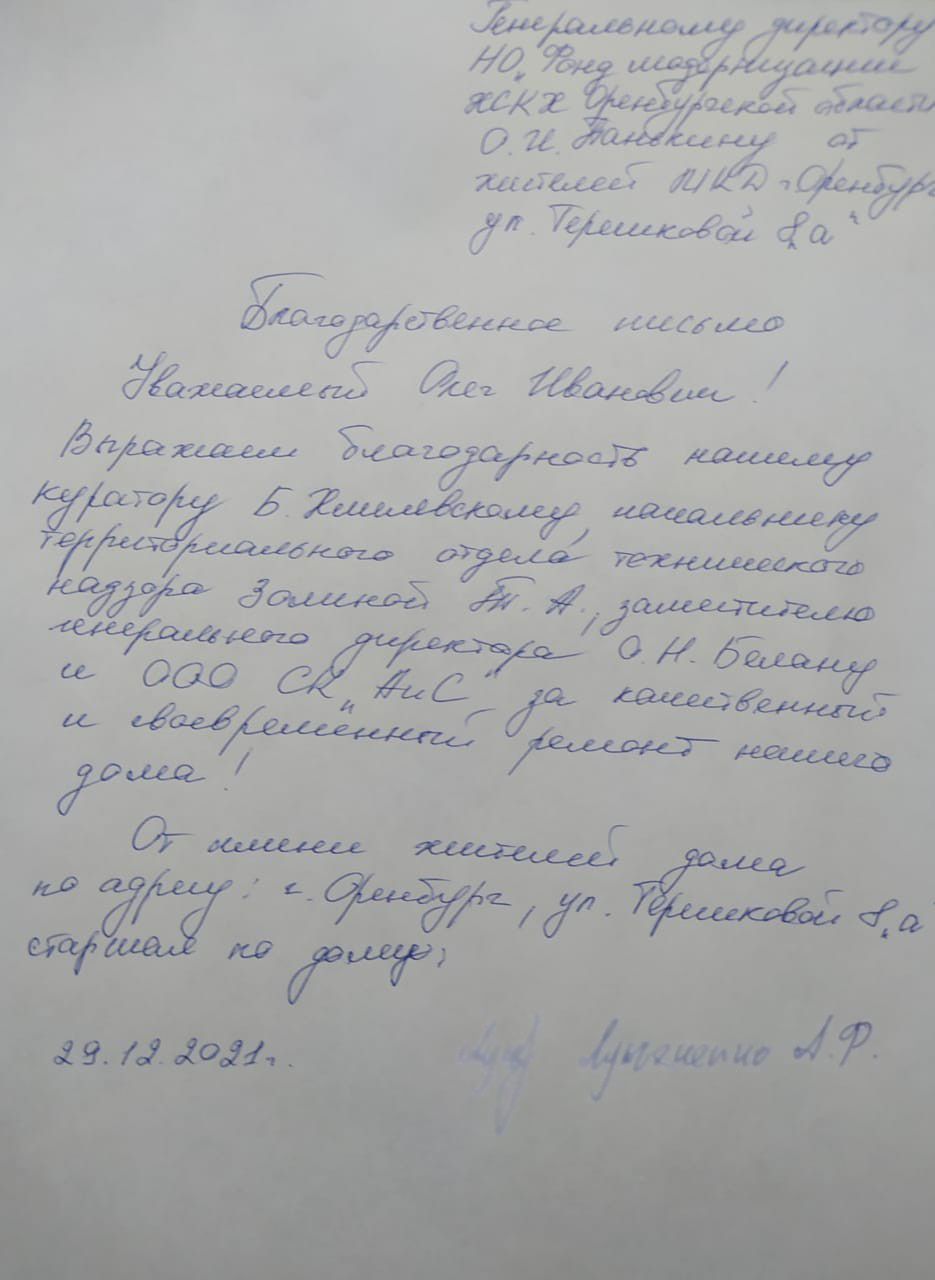 Генеральному директору
НО „Фонд модернизации
ЖКХ Оренбургской области
О.И. Панькину от
жителей МКД г. Оренбург
ул. Терешковой 8„а“
Благодарственное письмо
Уважаемый Олег Иванович!
Выражаем благодарность нашему
куратору Б. Хмилевскому, начальнику
территориального отдела технического
надзора Золиной Т. А., заместителю
генерального директора О.Н. Белану
и ООО СК „АиС“ за качественный
и своевременный ремонт нашего
дома!
От имени жителей дома
по адресу: г. Оренбург, ул. Терешковой 8„а
старшая по дому:
29.12.2021г. А.Ф.